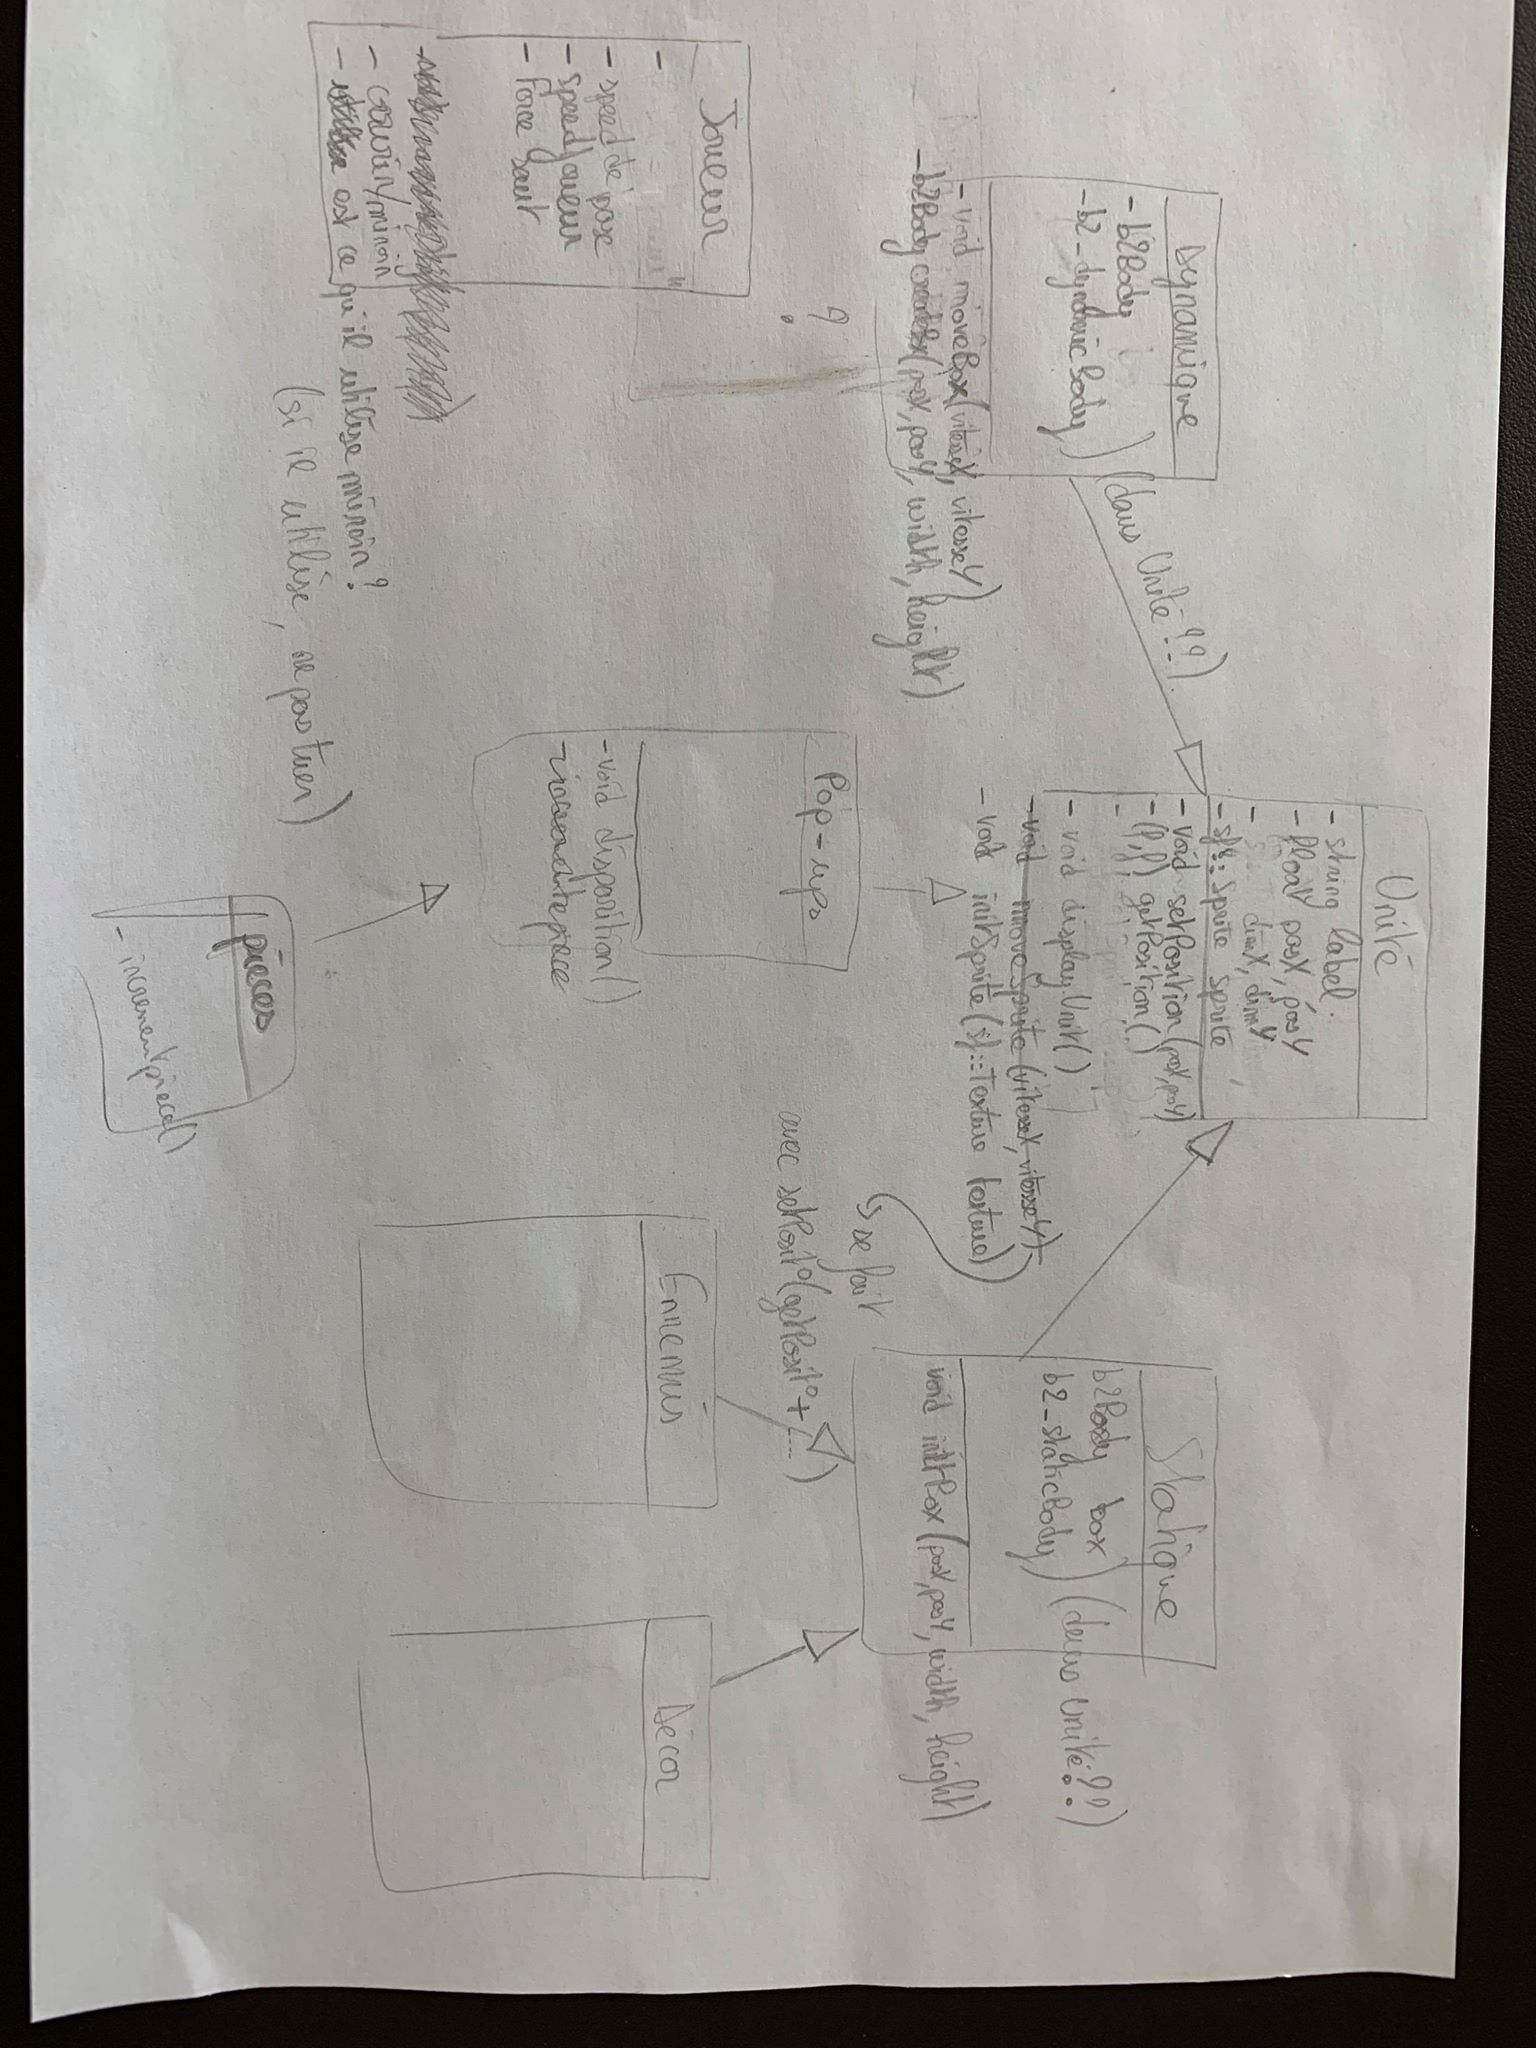 Unité
- string label
- float posX, posY
- dimX, dimY
- sf::Sprite sprite
- void setPosition(posX, posY)
- (f,f) getPosition()
- void displayUnit()
- void moveSprite(vitesseX, vitesseY)
- void initSprite(sf::Texture texture)
↳ se fait
avec setPosit°(getPosit°+...)
Dynamique
- b2Body
- b2_dynamicBody) (dans Unité??)
- void moveBox(vitesseX, vitesseY)
- b2Body (posX, posY, width, height)
?
Statique
b2Body box
b2_staticBody) (dans Unité??)
void initBox(posX, posY, width, height)
Joueur
-
- speed de pose
- speed joueur
- Force saut
- courir/miroir
- est ce qu'il utilise miroir?
(si il utilise, pas tuer)
Pop-ups
- void disparition()
- incrementepiece
Ennemis
Décor
pièces
- incrementpiece()